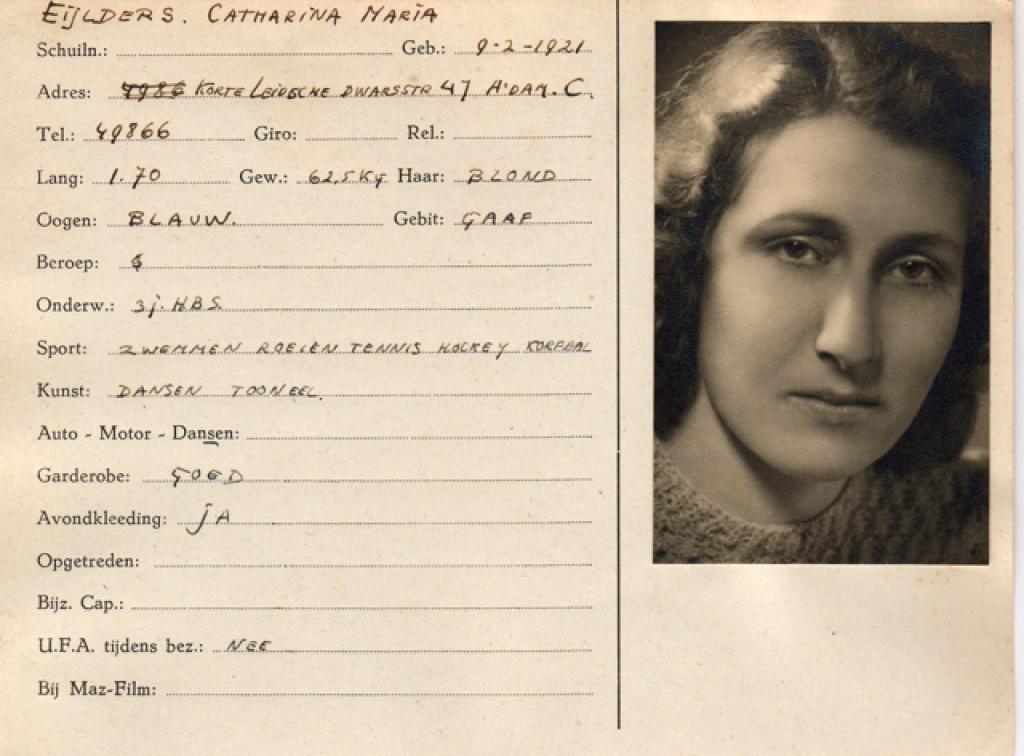 EIJLDERS. CATHARINA MARIA
Schuiln.: Geb.: 9-2-1921
Adres: 4986 KORTE LEIDSCHE DWARSSTR 47 A'DAM. C.
Tel.: 49866 Giro: Rel.:
Lang: 1.70 Gew.: 62,5 Kg Haar: BLOND
Oogen: BLAUW. Gebit: GAAF
Beroep:
Onderw.: 3 j. H.B.S.
Sport: ZWEMMEN ROEIEN TENNIS HOCKEY KORFBAL
Kunst: DANSEN TOONEEL.
Auto - Motor - Dansen:
Garderobe: GOED
Avondkleeding: JA
Opgetreden:
Bijz. Cap.:
U.F.A. tijdens bez.: NEE
Bij Maz-Film: